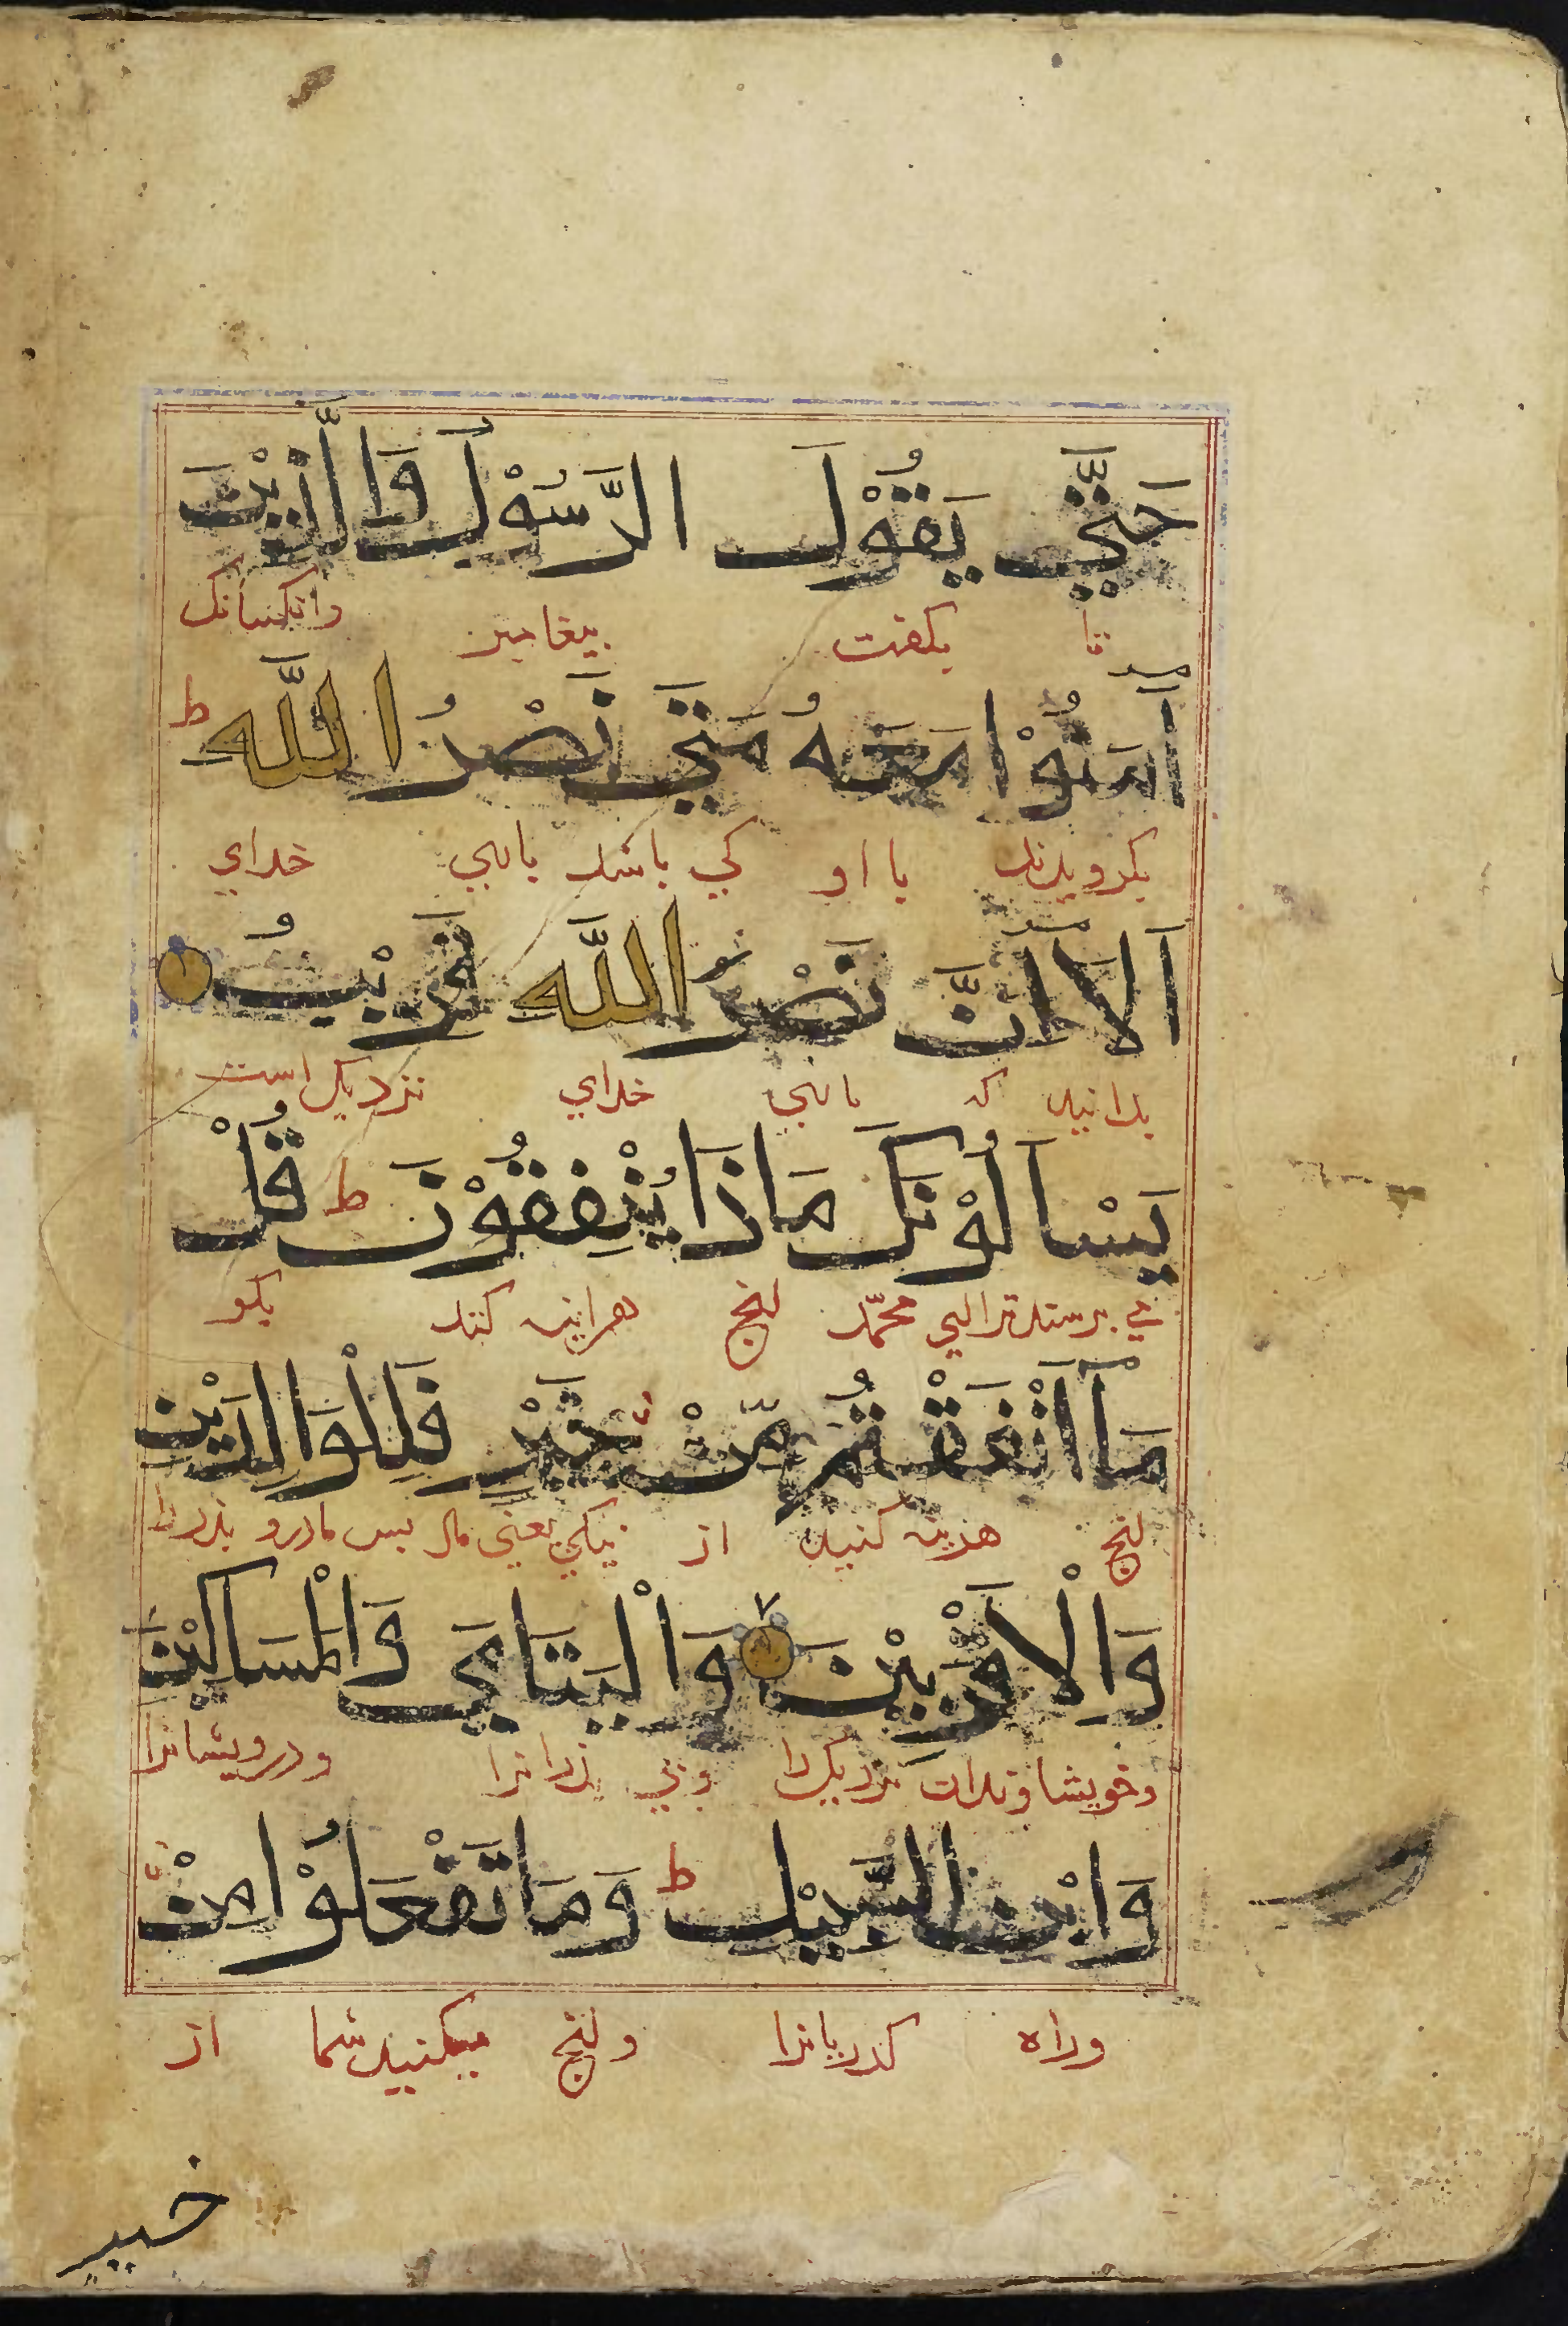 حَتَّى يَقُوْلَ الرَّسُوْلُ وَالَّذِيْنَ
تا بكفت بيغامبر وانكسانك
آمَنُوْا مَعَهُ مَتَى نَصْرُ اللَّه ط
بكرويدند با او كي باشد ياري خداي
اَلَا اِنَّ نَصْرَ اللَّه قَرِيْبٌ
بدانيد كه ياري خداي نزديك است
يَسْاَلُوْنَكَ مَاذَا يُنْفِقُوْنَ ط قُلْ
مي برستد ترا اي محمّد انج هزاينه كنند بكو
مَا اَنْفَقْتُمْ مِّنْ خَيْرٍ فَلِلْوَالِدَيْنِ
انج هزينه كنيد از نيكي يعني مال بس مادر و بدر را
وَالْاَقْرَبِيْنَ وَالْيَتَامَى وَالْمَسَاكِيْنَ
وخويشاوندان نزديك را وبي بدرانرا ودرويشانرا
وَابْنِ السَّبِيْلِ ط وَمَا تَفْعَلُوْا مِنْ
وراه كذريانرا وانج ميكنيد شما از
خير